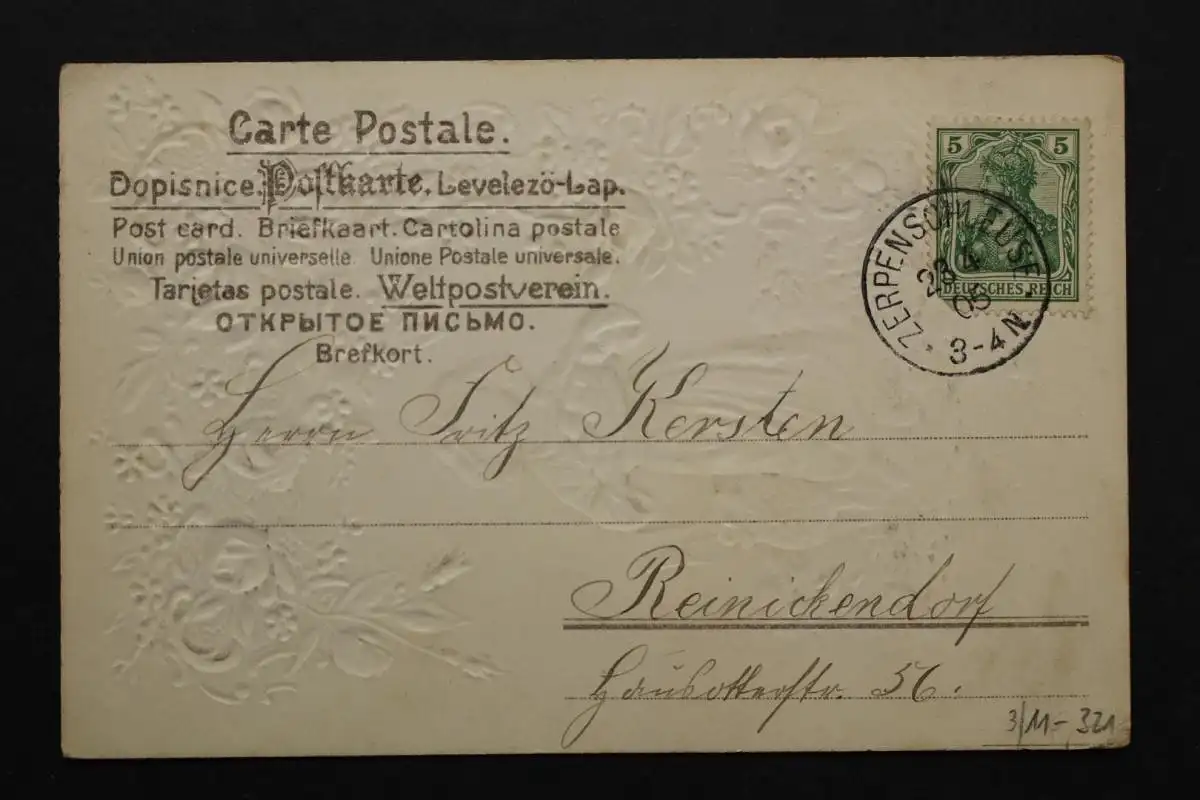 Carte Postale.
Dopisnice. Postkarte. Levelezö-Lap.
Post card. Briefkaart. Cartolina postale
Union postale universelle. Unione Postale universale.
Tarjetas postale. Weltpostverein.
ОТКРЫТОЕ ПИСЬМО.
Brefkort.
5 5
DEUTSCHES REICH
ZERPENSCHLEUSE
23 4
05
* 3-4 N
Herrn Fritz Kersten
Reinickendorf
Hausotterstr. 56.
3/11-, 321